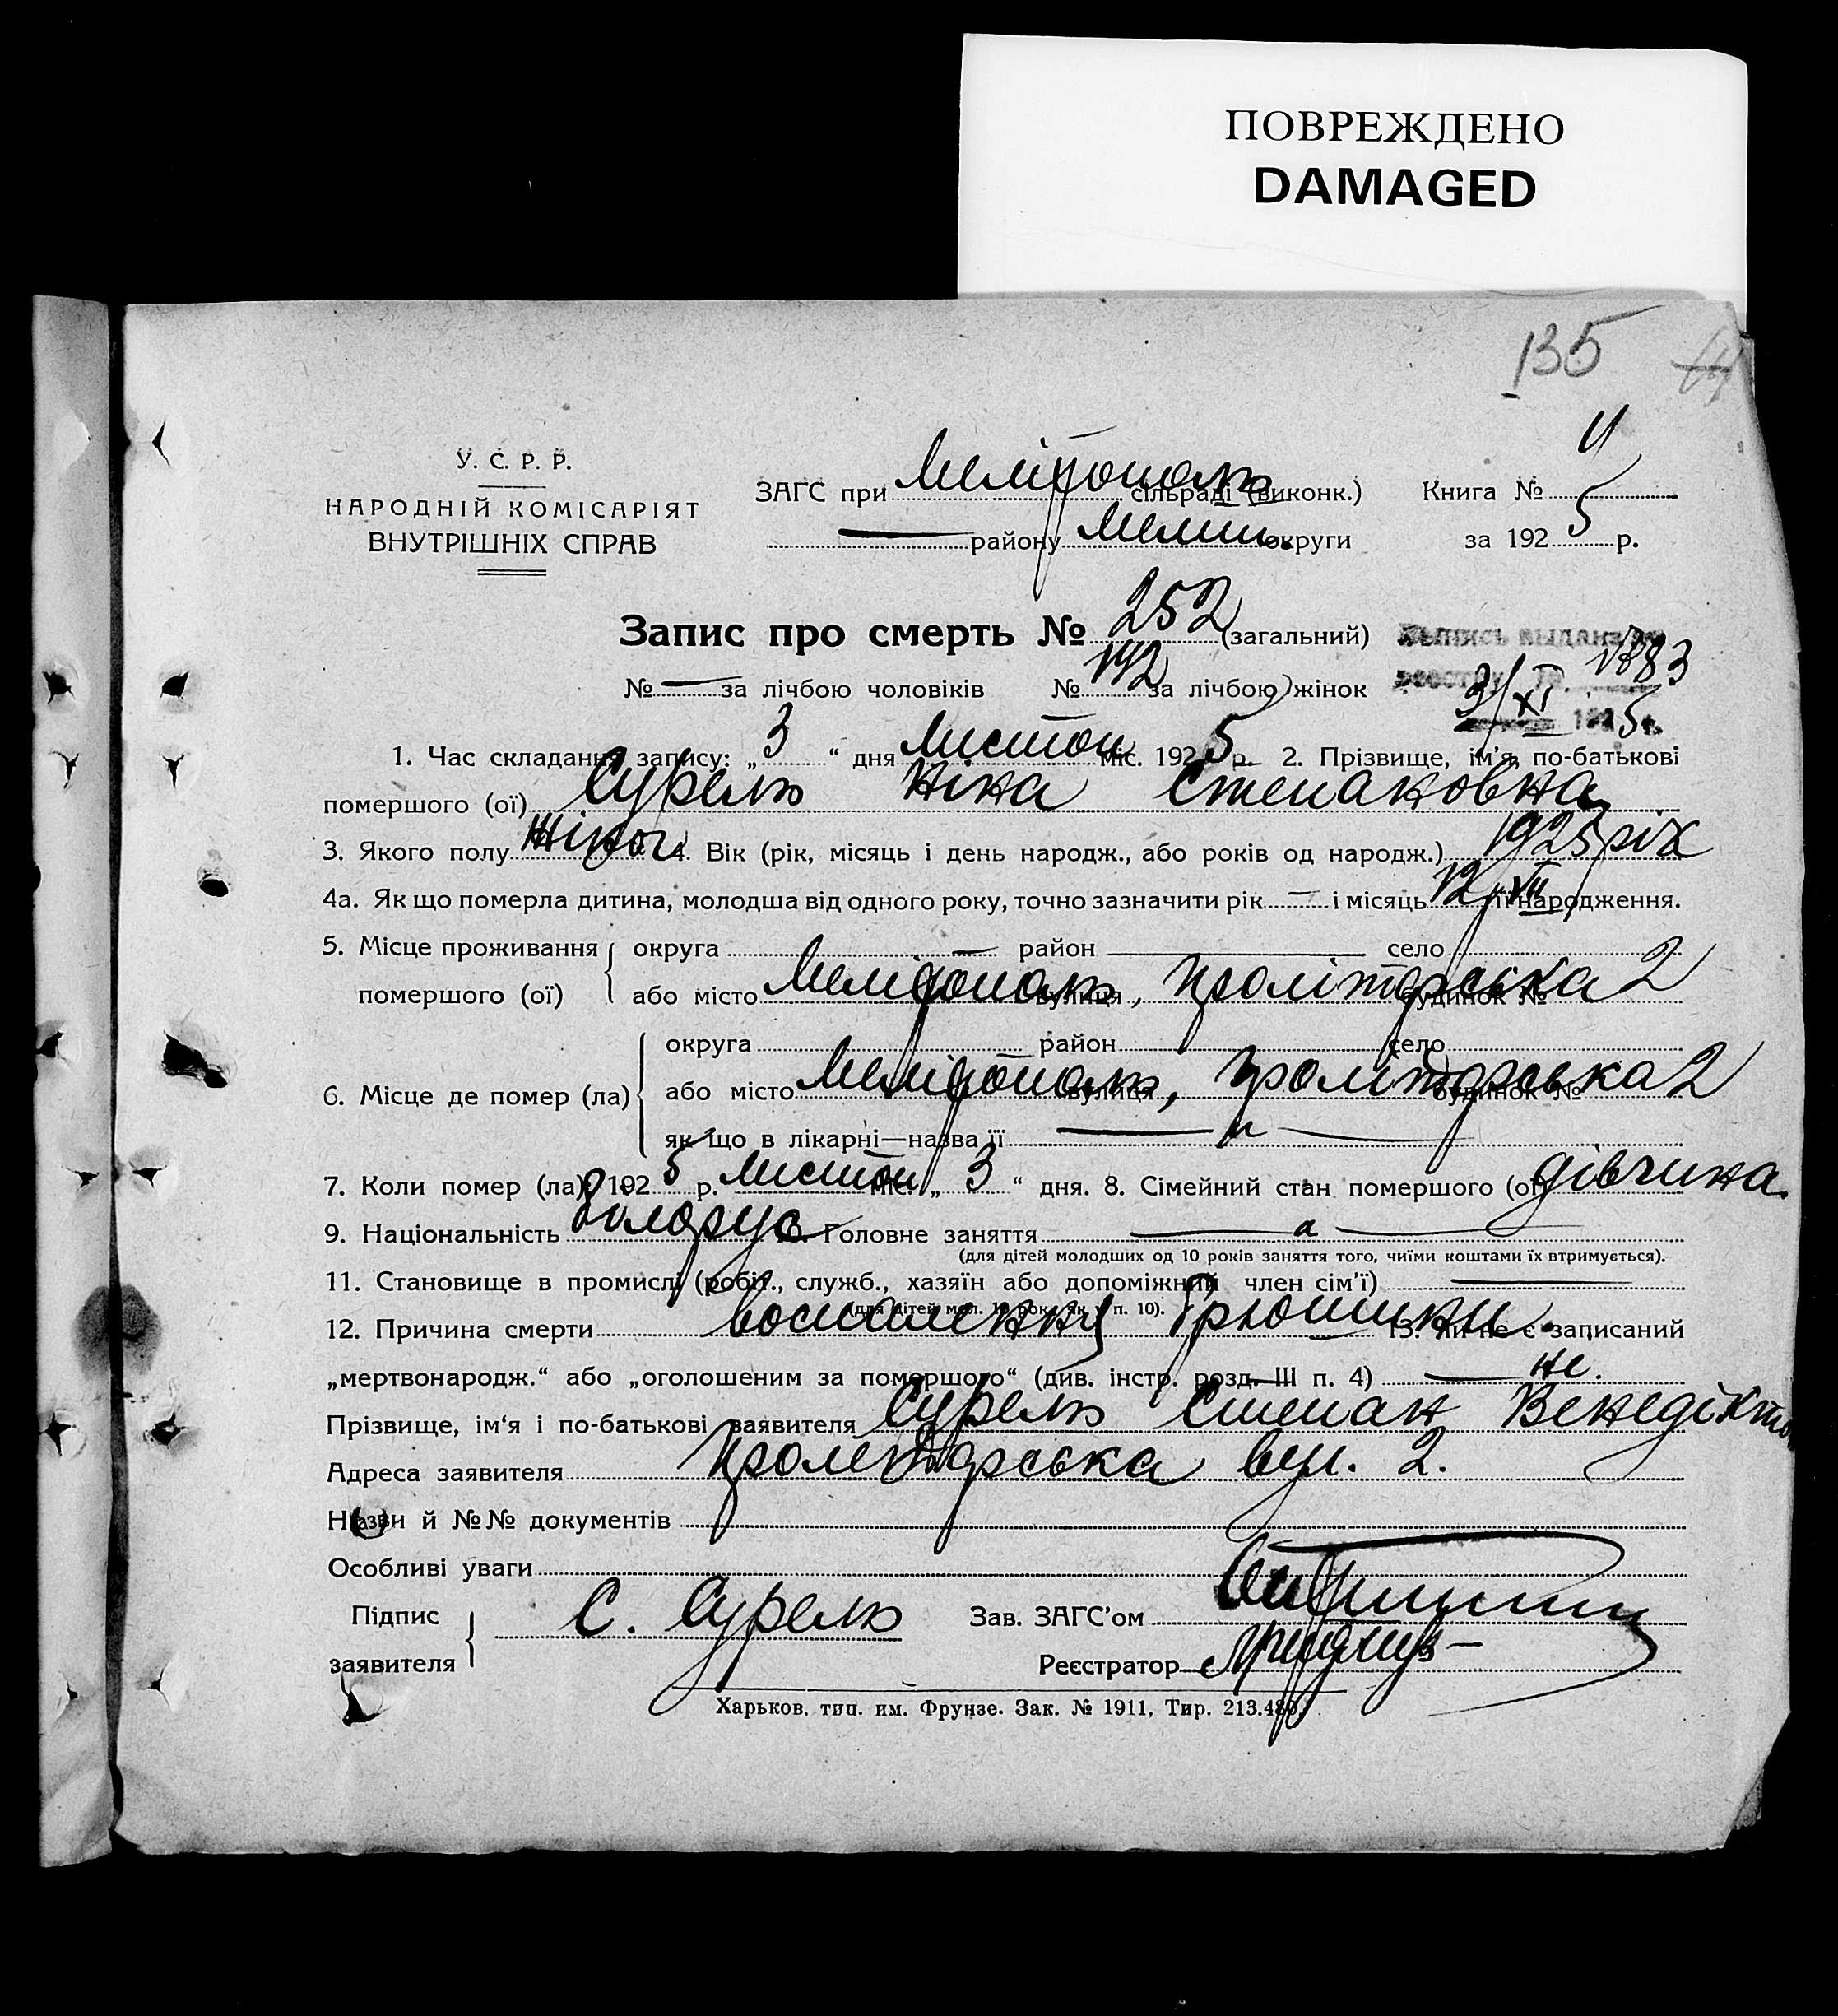 ПОВРЕЖДЕНО
DAMAGED
135
У. С. Р. Р.
НАРОДНІЙ КОМІСАРІЯТ
ВНУТРІШНІХ СПРАВ
ЗАГС при Мелітополь сільраді (виконк.) Книга № 4
— району Мелит. округи за 192 5 р.
Запис про смерть № 252 (загальний)
Выпись выдана
№ — за лічбою чоловіків № 142 за лічбою жінок
реестру
3/XI 1925 г.
1. Час складання запису: „ 3 “ дня листоп міс. 192 5 р. 2. Прізвище, ім'я, по-батькові
помершого (ої) Сурель Ніна Степановна
3. Якого полу жіноч 4. Вік (рік, місяць і день народж., або років од народж.) 1925 рік
4а. Як що померла дитина, молодша від одного року, точно зазначити рік — і місяць 12/VII її народження.
5. Місце проживання помершого (ої) округа — район — село
або місто Мелітополь вулиця, Пролітарська будинок № 2
6. Місце де помер (ла) округа район село
або місто Мелітополь вулиця, Пролітарська будинок № 2
як що в лікарні—назва її — „ —
7. Коли помер (ла) 192 5 р. листоп міс. „ 3 “ дня. 8. Сімейний стан помершого (ої) дівчина.
9. Національність білорус 10. Головне заняття —
(для дітей молодших од 10 років заняття того, чиїми коштами їх втримується).
11. Становище в промислі (робіт., служб., хазяїн або допоміжний член сім'ї) —
(для дітей мол. 10 рок. як у п. 10).
12. Причина смерти воспалення брюшини. 13. Чи не є записаний
„мертвонародж.“ або „оголошеним за помершого“ (див. інстр. розд. III п. 4) — не.
Прізвище, ім'я і по-батькові заявителя Сурель Степан Венедікто
Адреса заявителя Пролетарська вул. 2.
Назви й №№ документів
Особливі уваги
Підпис заявителя С. Сурель Зав. ЗАГС'ом
Реєстратор
Харьков, тип. им. Фрунзе. Зак. № 1911, Тир. 213.480.